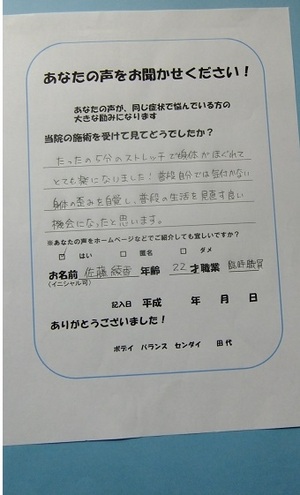 あなたの声をお聞かせください！
あなたの声が、同じ症状で悩んでいる方の
大きな励みになります
当院の施術を受けて見てどうでしたか？
たったの5分のストレッチで身体がほぐれて
とても楽になりました！普段自分では気付かない
身体の歪みを自覚し、普段の生活を見直す良い
機会になったと思います。
※あなたの声をホームページなどでご紹介しても宜しいですか？
はい 匿名 ダメ
お名前 佐藤 綾香 年齢 22才 職業 臨時職員
(イニシャル可)
記入日 平成 年 月 日
ありがとうございました！
ボデイ バランス センダイ 田代